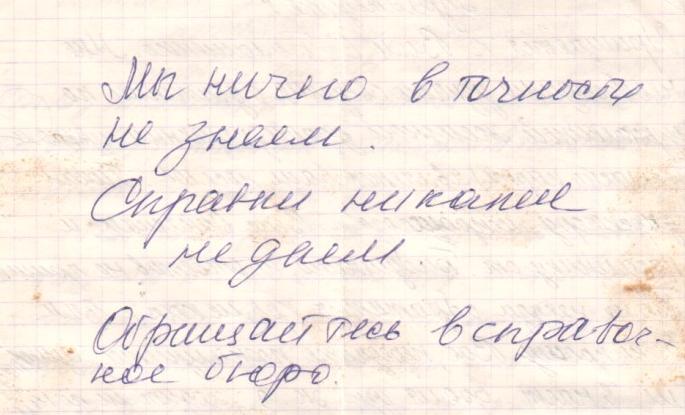 Мы ничего в точности
не знаем.
Справки никакие
не даем.
Обращайтесь в справоч-
ное бюро.